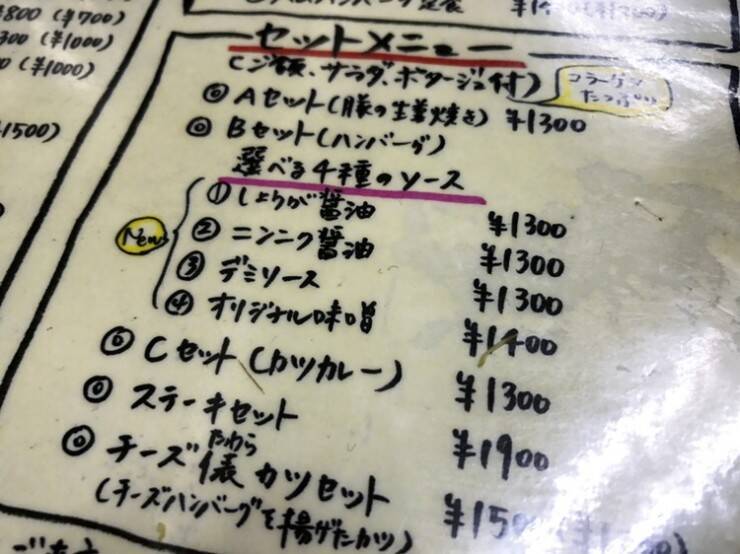 800 (¥700)
300 (¥1000)
0 (¥1000)
1500)
セットメニュー
(ご飯、サラダ、ポタージュ付)
コラーゲン
たっぷり
◎ Aセット(豚の生姜焼き) ¥1300
◎ Bセット(ハンバーグ)
選べる4種のソース
New
① しょうが醤油 ¥1300
② ニンニク醤油 ¥1300
③ デミソース ¥1300
④ オリジナル味噌 ¥1400
◎ Cセット(カツカレー) ¥1300
◎ ステーキセット ¥1900
◎ チーズ俵カツセット ¥15
たわら
(チーズハンバーグを揚げたカツ)